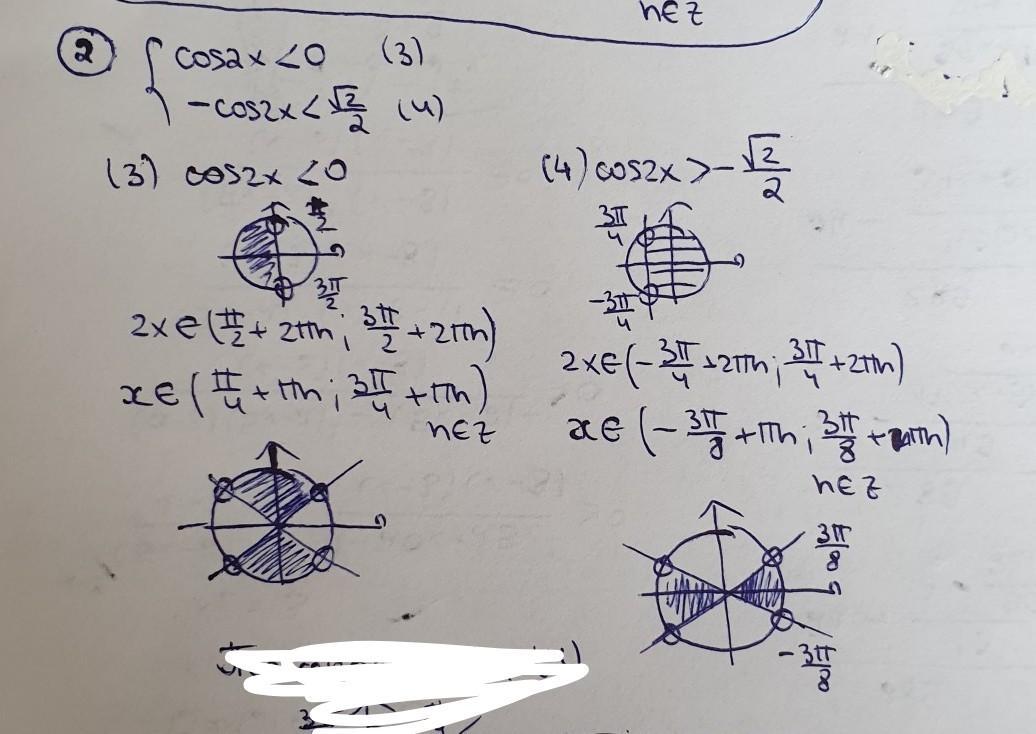 n∈Z
② { cos2x<0 (3)
-cos2x<√2/2 (4)
(3) cos2x<0
π/2
3π/2
2x∈(π/2+2πn; 3π/2+2πn)
x∈(π/4+πn; 3π/4+πn)
n∈Z
(4) cos2x>-√2/2
3π/4
-3π/4
2x∈(-3π/4+2πn; 3π/4+2πn)
x∈(-3π/8+πn; 3π/8+πn)
n∈Z
3π/8
-3π/8